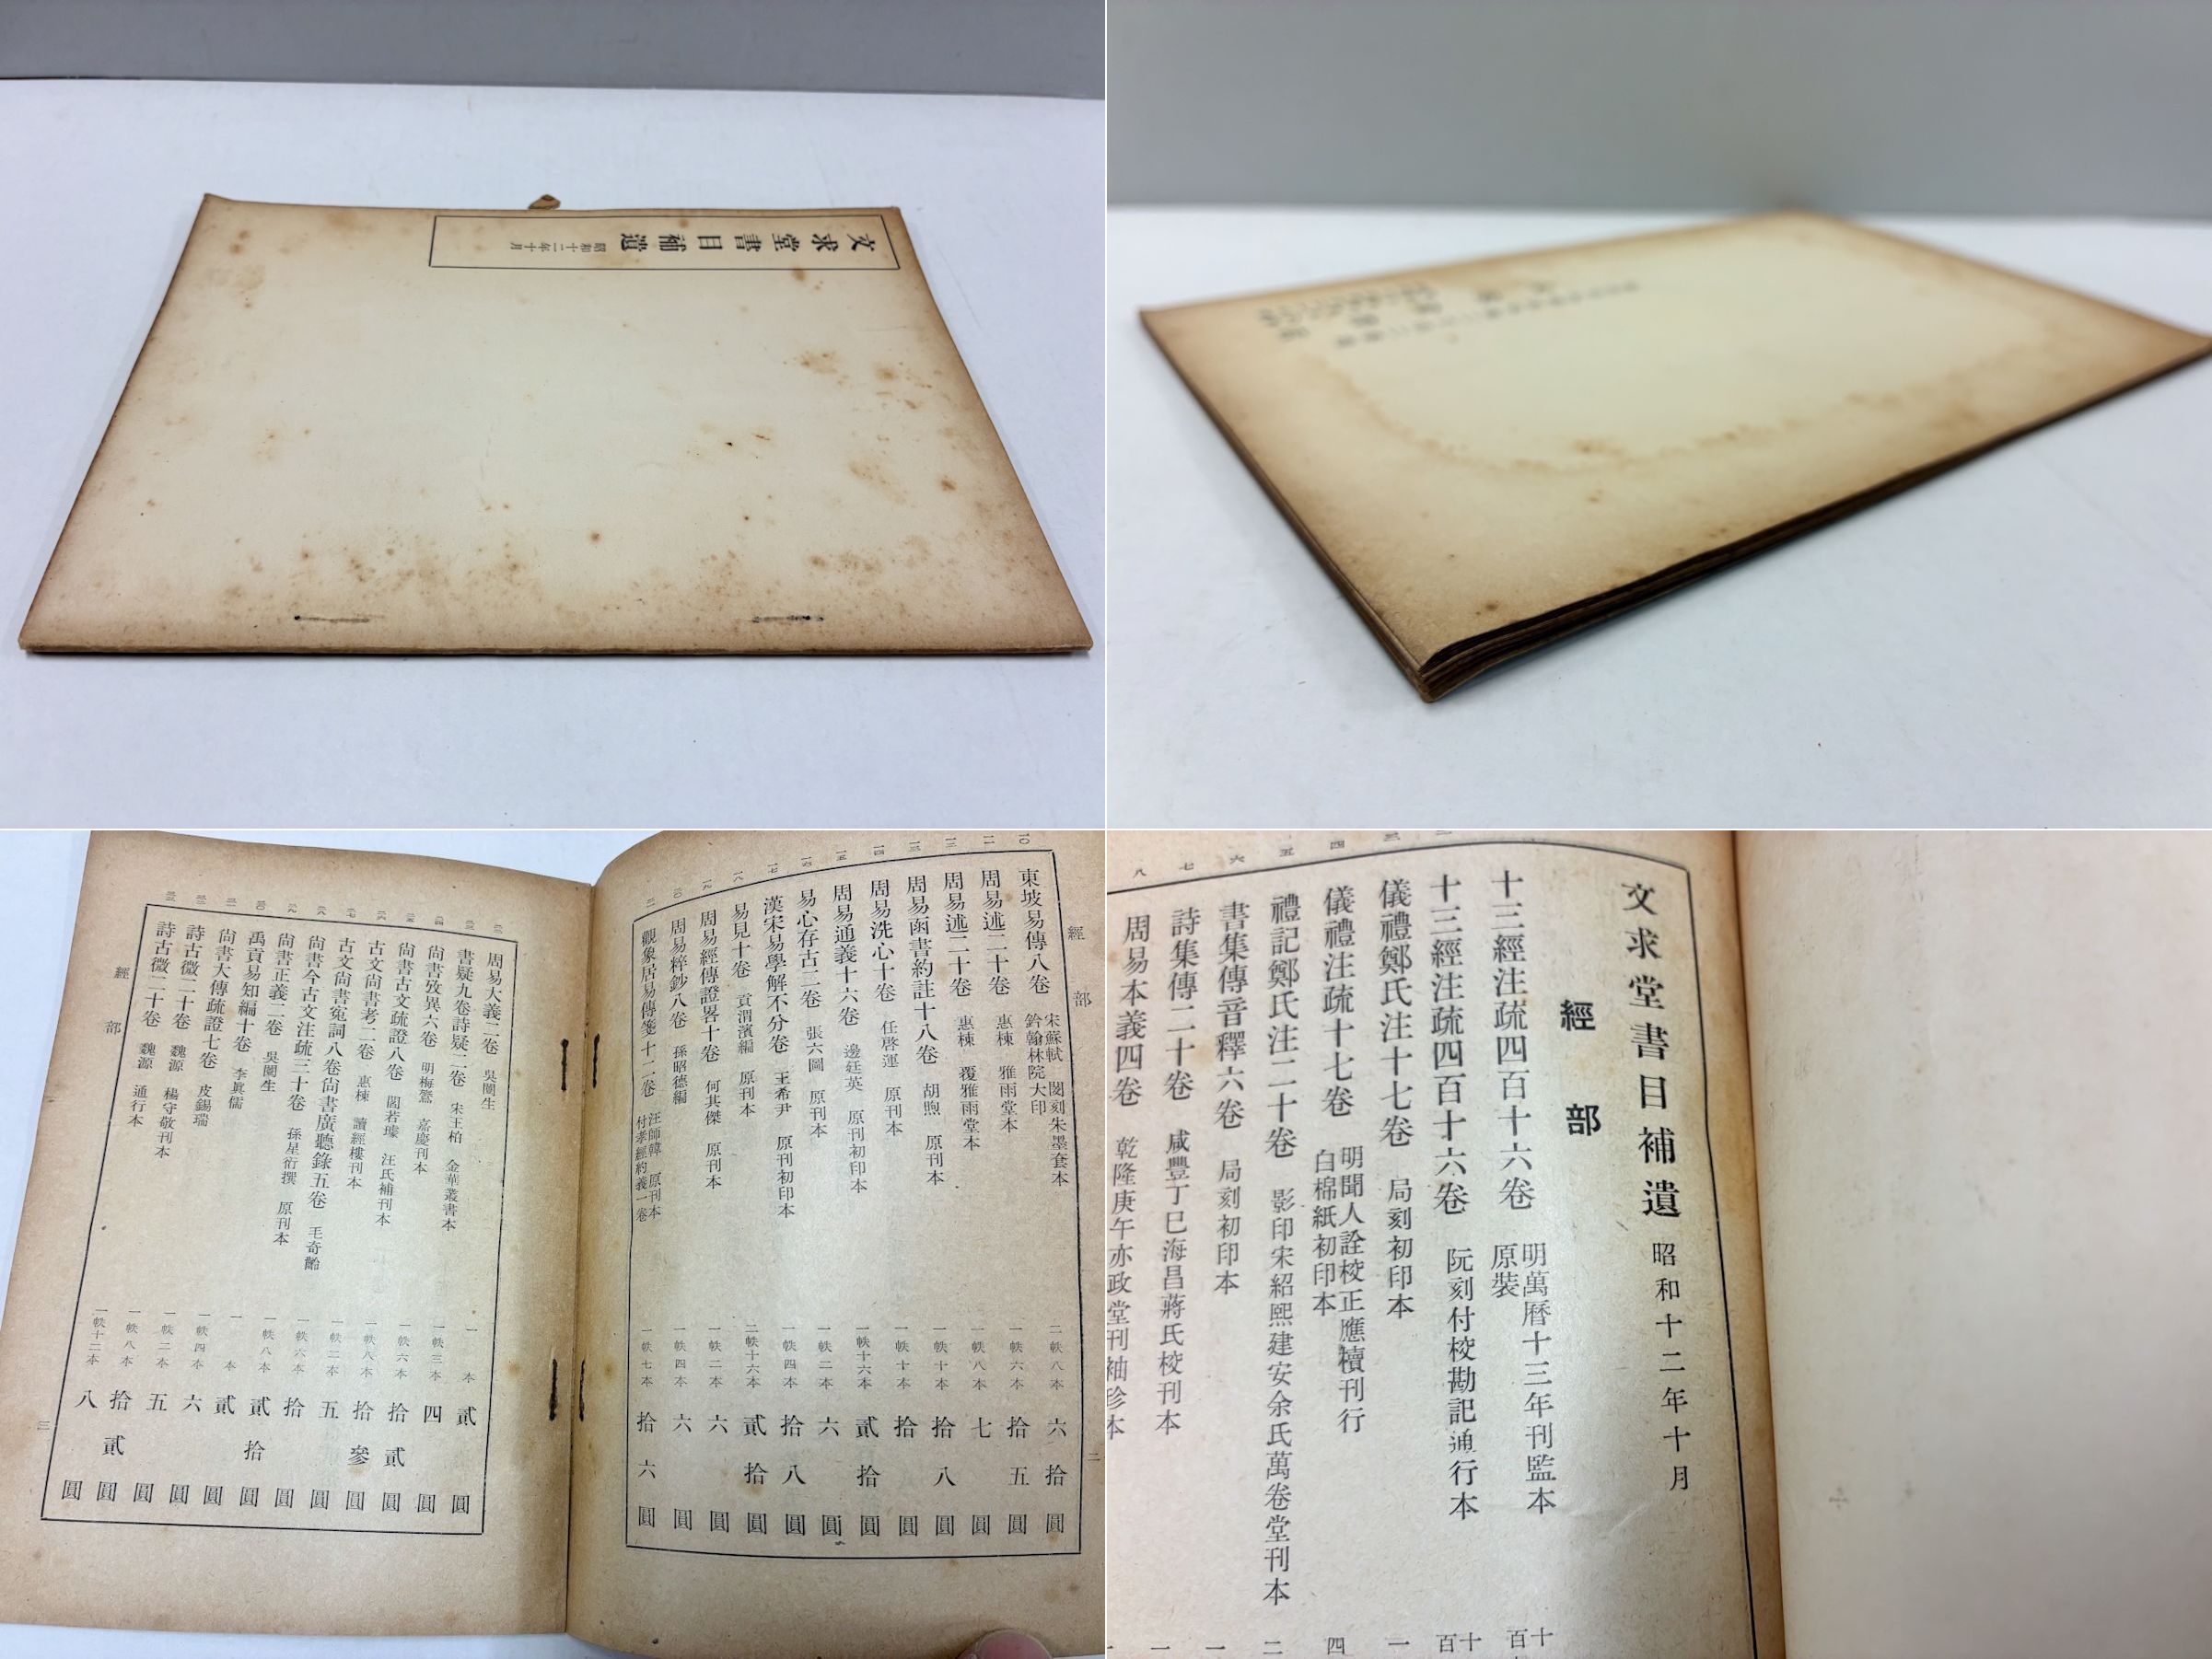 文求堂書目補遺 昭和十二年十月
經 部
二
一〇
東坡易傳八卷 宋蘇軾 閔刻朱墨套本 鈐翰林院大印 二帙八本 六拾圓
一一
周易述二十卷 惠棟 雅雨堂本 一帙六本 拾五圓
一二
周易述二十卷 惠棟 覆雅雨堂本 一帙八本 七圓
一三
周易函書約註十八卷 胡煦 原刊本 一帙十本 拾八圓
一四
周易洗心十卷 任啓運 原刊本 一帙十本 拾圓
一五
周易通義十六卷 邊廷英 原刊初印本 一帙十六本 貳拾圓
一六
易心存古二卷 張六圖 原刊本 一帙二本 六圓
一七
漢宋易學解不分卷 王希尹 原刊初印本 一帙四本 拾八圓
一八
易見十卷 貢渭濱編 原刊本 二帙十六本 貳拾圓
一九
周易經傳證畧十卷 何其傑 原刊本 一帙二本 六圓
二〇
周易粹鈔八卷 孫昭德編 一帙四本 六圓
二一
觀象居易傳箋十二卷 汪師韓 原刊本 付孝經約義一卷 一帙七本 拾六圓
二二
周易大義二卷 吳闓生 一本 貳圓
二三
書疑九卷詩疑二卷 宋王柏 金華叢書本 一帙三本 四圓
二四
尙書攷異六卷 明梅鷟 嘉慶刊本 一帙六本 拾貳圓
二五
尙書古文疏證八卷 閻若璩 汪氏補刊本 一帙八本 拾參圓
二六
古文尙書考二卷 惠棟 讀經樓刊本 一帙二本 五圓
二七
古文尙書寃詞八卷尙書廣聽錄五卷 毛奇齡 一帙六本 拾圓
二八
尙書今古文注疏三十卷 孫星衍撰 原刊本 一帙八本 貳拾圓
二九
尙書正義二卷 吳闓生 一本 貳圓
三〇
禹貢易知編十卷 李眞儒 一帙四本 六圓
三一
尙書大傳疏證七卷 皮錫瑞 一帙二本 五圓
三二
詩古微二十卷 魏源 楊守敬刊本 一帙八本 拾貳圓
三三
詩古微二十卷 魏源 通行本 一帙十二本 八圓
經 部
三
文求堂書目補遺 昭和十二年十月
經 部
十三經注疏四百十六卷 明萬曆十三年刊監本 原裝
十三經注疏四百十六卷 阮刻付校勘記通行本
儀禮鄭氏注十七卷 局刻初印本
儀禮注疏十七卷 明聞人詮校正應檟刊行 白棉紙初印本
禮記鄭氏注二十卷 影印宋紹熙建安余氏萬卷堂刊本
書集傳音釋六卷 局刻初印本
詩集傳二十卷 咸豐丁巳海昌蔣氏校刊本
周易本義四卷 乾隆庚午亦政堂刊袖珍本